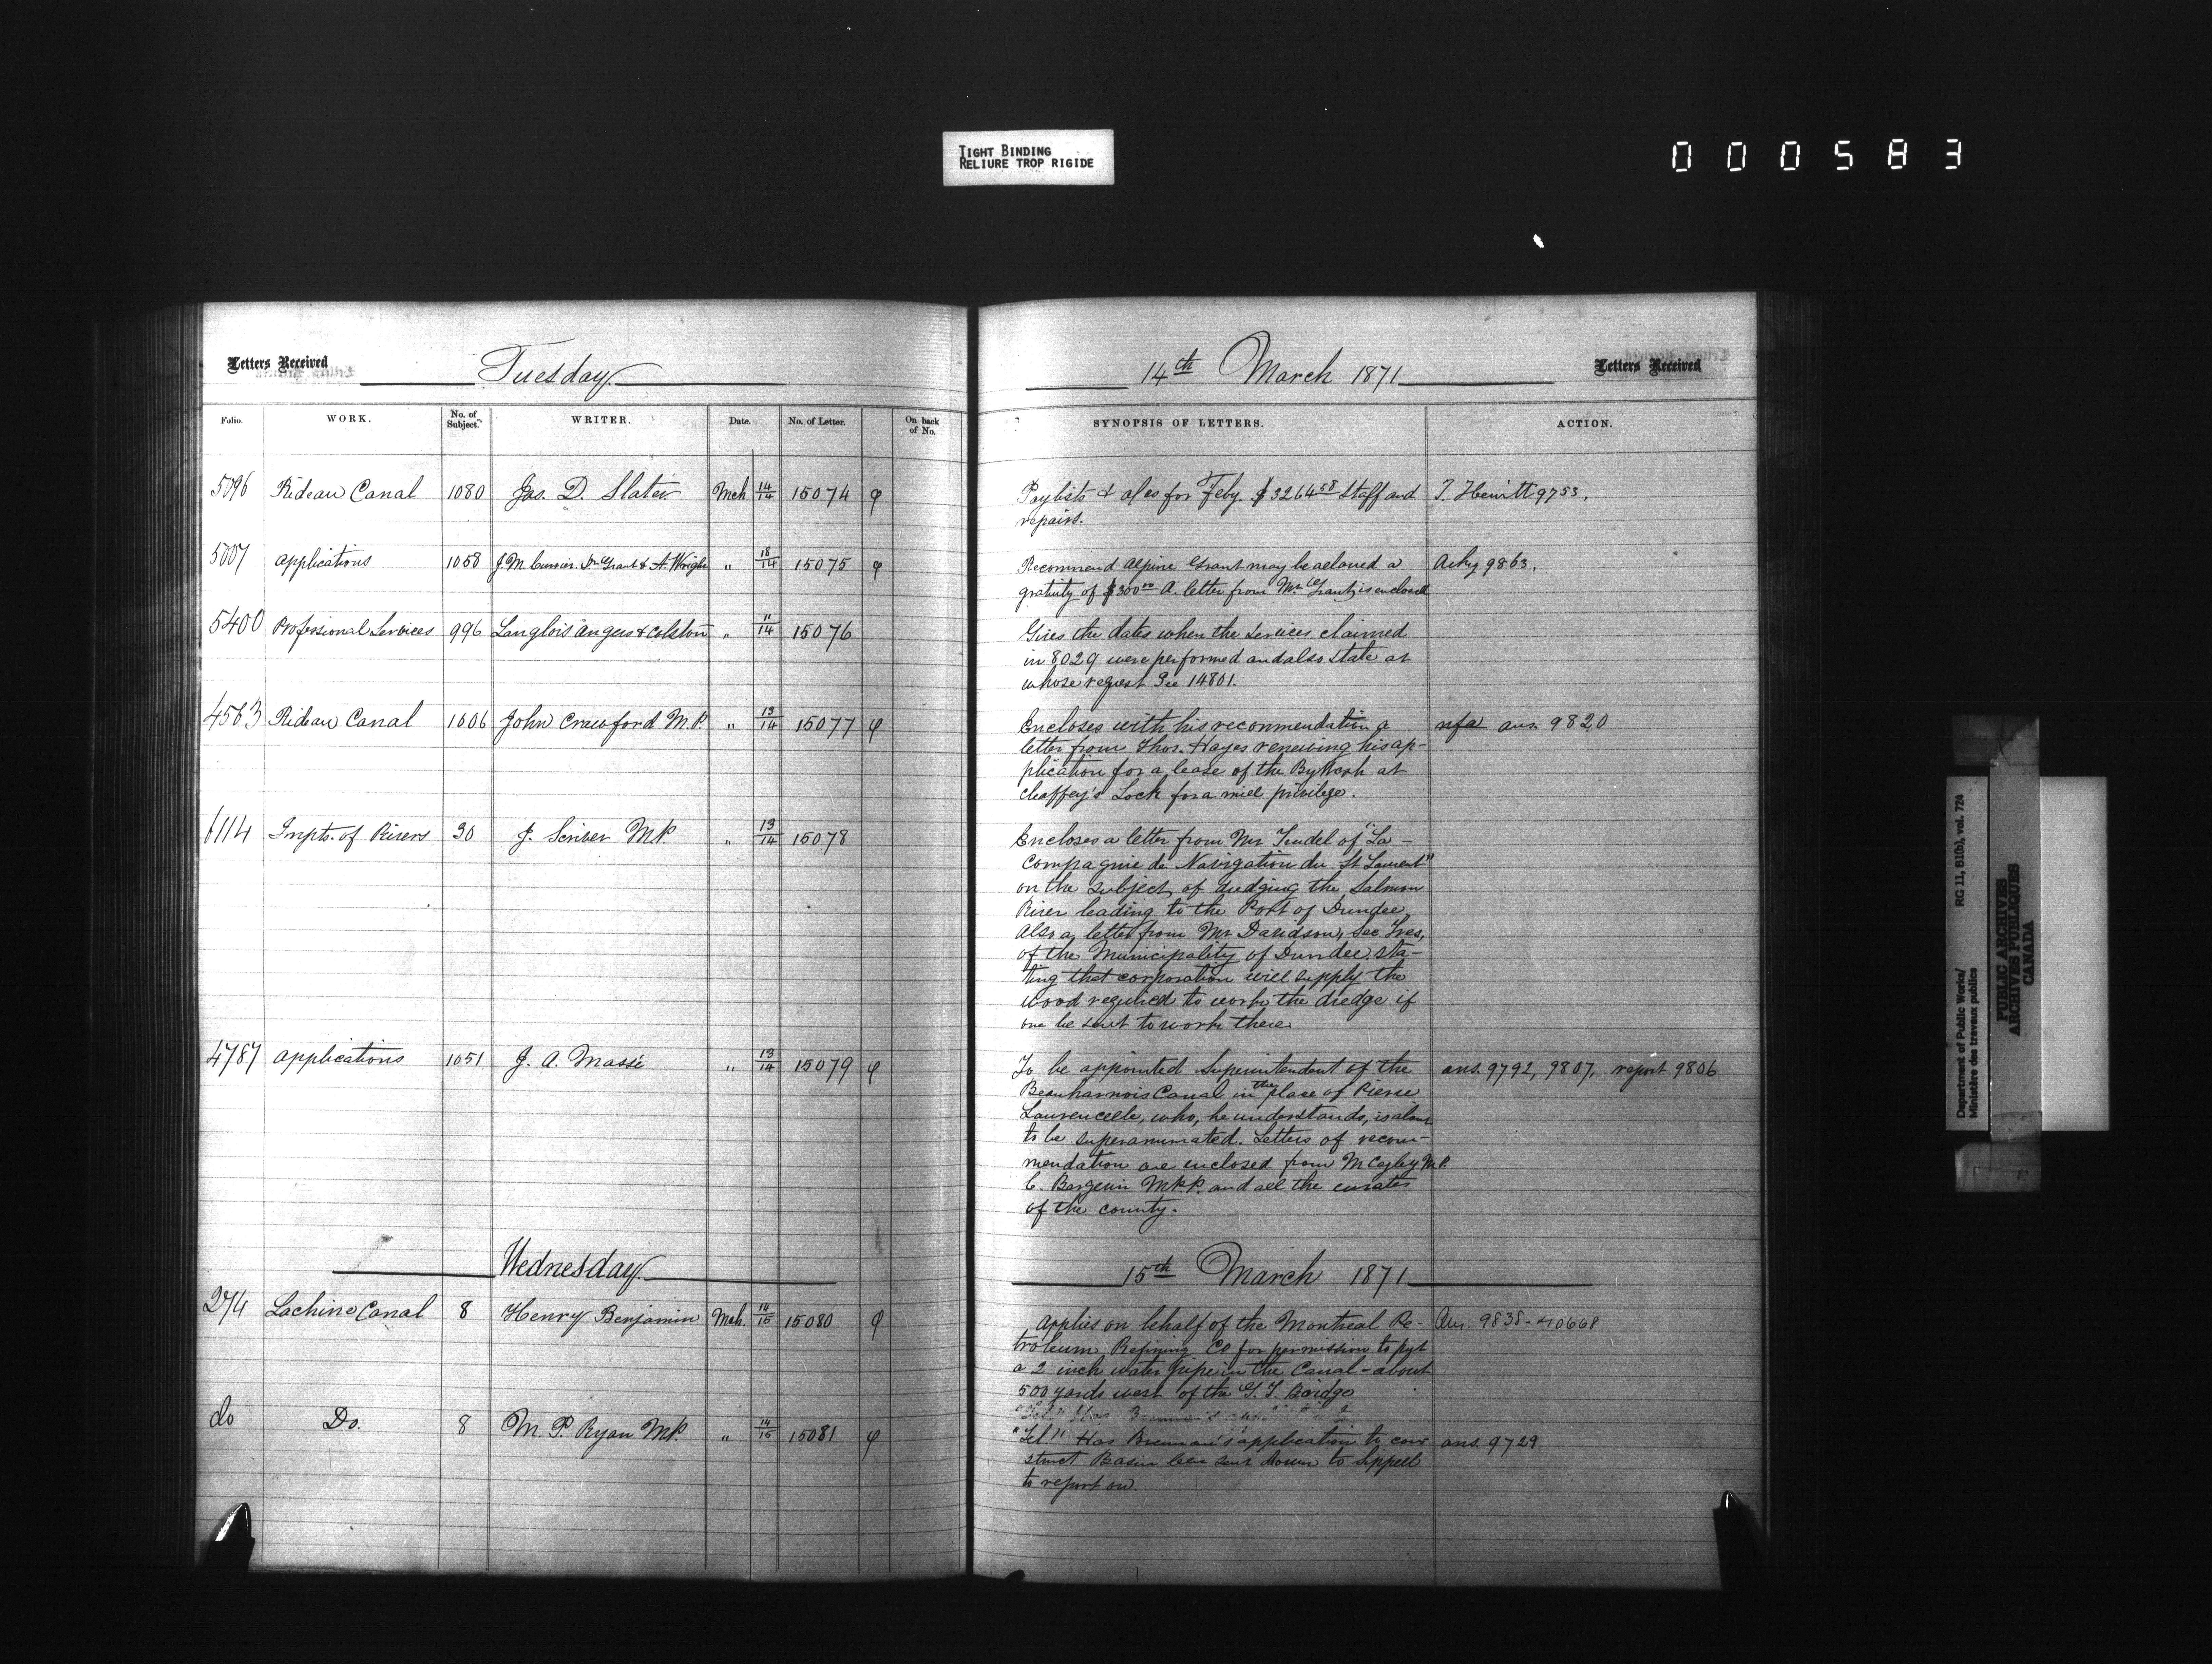 TIGHT BINDING
RELIURE TROP RIGIDE
000583
Letters Received
Tuesday
14th March 1871
Letters Received
Folio.
WORK.
No. of Subject.
WRITER.
Date.
No. of Letter.
On back of No.
SYNOPSIS OF LETTERS.
ACTION.
5096 Rideau Canal 1080 Jas. D. Slater Mch 14/14 15074 φ
Paylists & a/cs for Feby. $3264.58 Staff and
repairs.
T. Hewitt 9753.
5007 applications 1058 J. M. Currier. Dr Grant & A. Wright " 18/14 15075 φ
Recommend Alpine Grant may be allowed a
gratuity of $300.00 A. letter from Mr Grant is enclosed
Ackg 9863.
5400 Professional Services 996 Langlois Angers & Colston " 11/14 15076
Gives the dates when the services claimed
in 8029 were performed and also state at
whose request See 14801.
4563 Rideau Canal 1006 John Crawford M.P. " 13/14 15077 φ
Encloses with his recommendation a
letter from Thos. Hayes renewing his ap-
plication for a lease of the ByWash at
Chaffey's Lock for a mill privilege.
nfa ans. 9820
6114 Impts. of Rivers 30 J. Scriver M.P. " 13/14 15078
Encloses a letter from Mr Trudel of "La
Compagnie de Navigation du St Laurent"
on the subject of dredging the Salmon
River leading to the Port of Dundee
Also a letter from Mr Davidson, Sec. Tres,
of the Municipality of Dundee sta-
ting that corporation will supply the
wood required to work the dredge if
one be sent to work there.
4787 applications 1051 J. A. Massé " 13/14 15079 φ
To be appointed Superintendent of the
Beauharnois Canal in the place of Pierre
Laurencelle, who, he understands, is about
to be superannuated. Letters of recom-
mendation are enclosed from M Cayley M.P.
C. Bergevin M.P.P. and all the curates
of the county.
ans. 9792, 9807, report 9806
Wednesday
15th March 1871
274 Lachine Canal 8 Henry Benjamin Mch. 14/15 15080 φ
applies on behalf of the Montreal Pe-
troleum Refining Co for permission to put
a 2 inch water pipe in the Canal - about
500 yards west of the G. T. Bridge
Ans. 9838-10668
do Do. 8 M. P. Ryan M.P. " 14/15 15081 φ
"Tel." Has Brennan's application to con
struct Basin been sent down to Sippell
to report on.
ans. 9729
Department of Public Works/
Ministère des travaux publics
RG 11, B1(b), vol. 724
PUBLIC ARCHIVES
ARCHIVES PUBLIQUES
CANADA